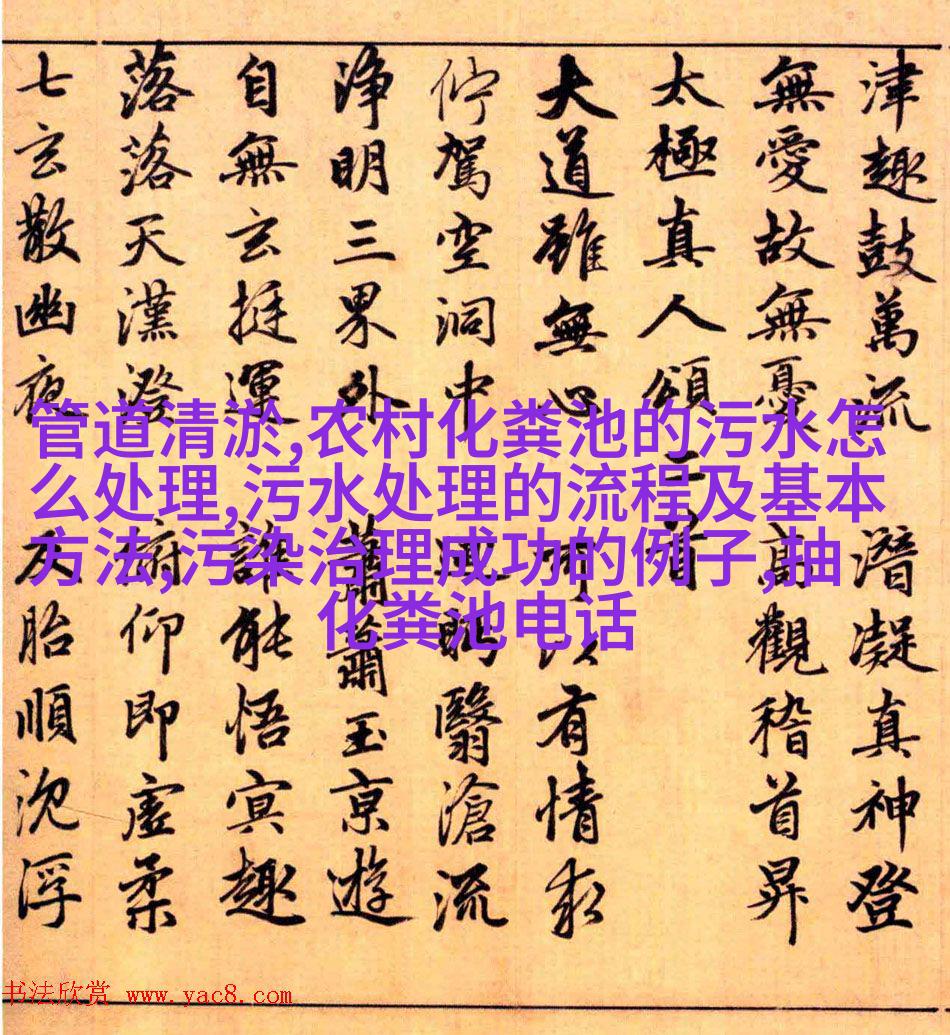 津趣鼓萬流 潛凝真神登
無愛故無憂 高觀稽首昇
太極真人頌二首
大道雖無心 可以有情求
佇駕空洞中 迴眄翳滄流
淨明三界外 蕭蕭玉京遊
自無玄挺運 誰能悟冥趣
落落天漢澄 俯仰即虛柔
七玄散幽夜 反胎順沈浮
管道清淤,农村化粪池的污水怎
么处理,污水处理的流程及基本
方法,污染治理成功的例子,抽
化粪池电话
书法欣赏 www.yac8.com